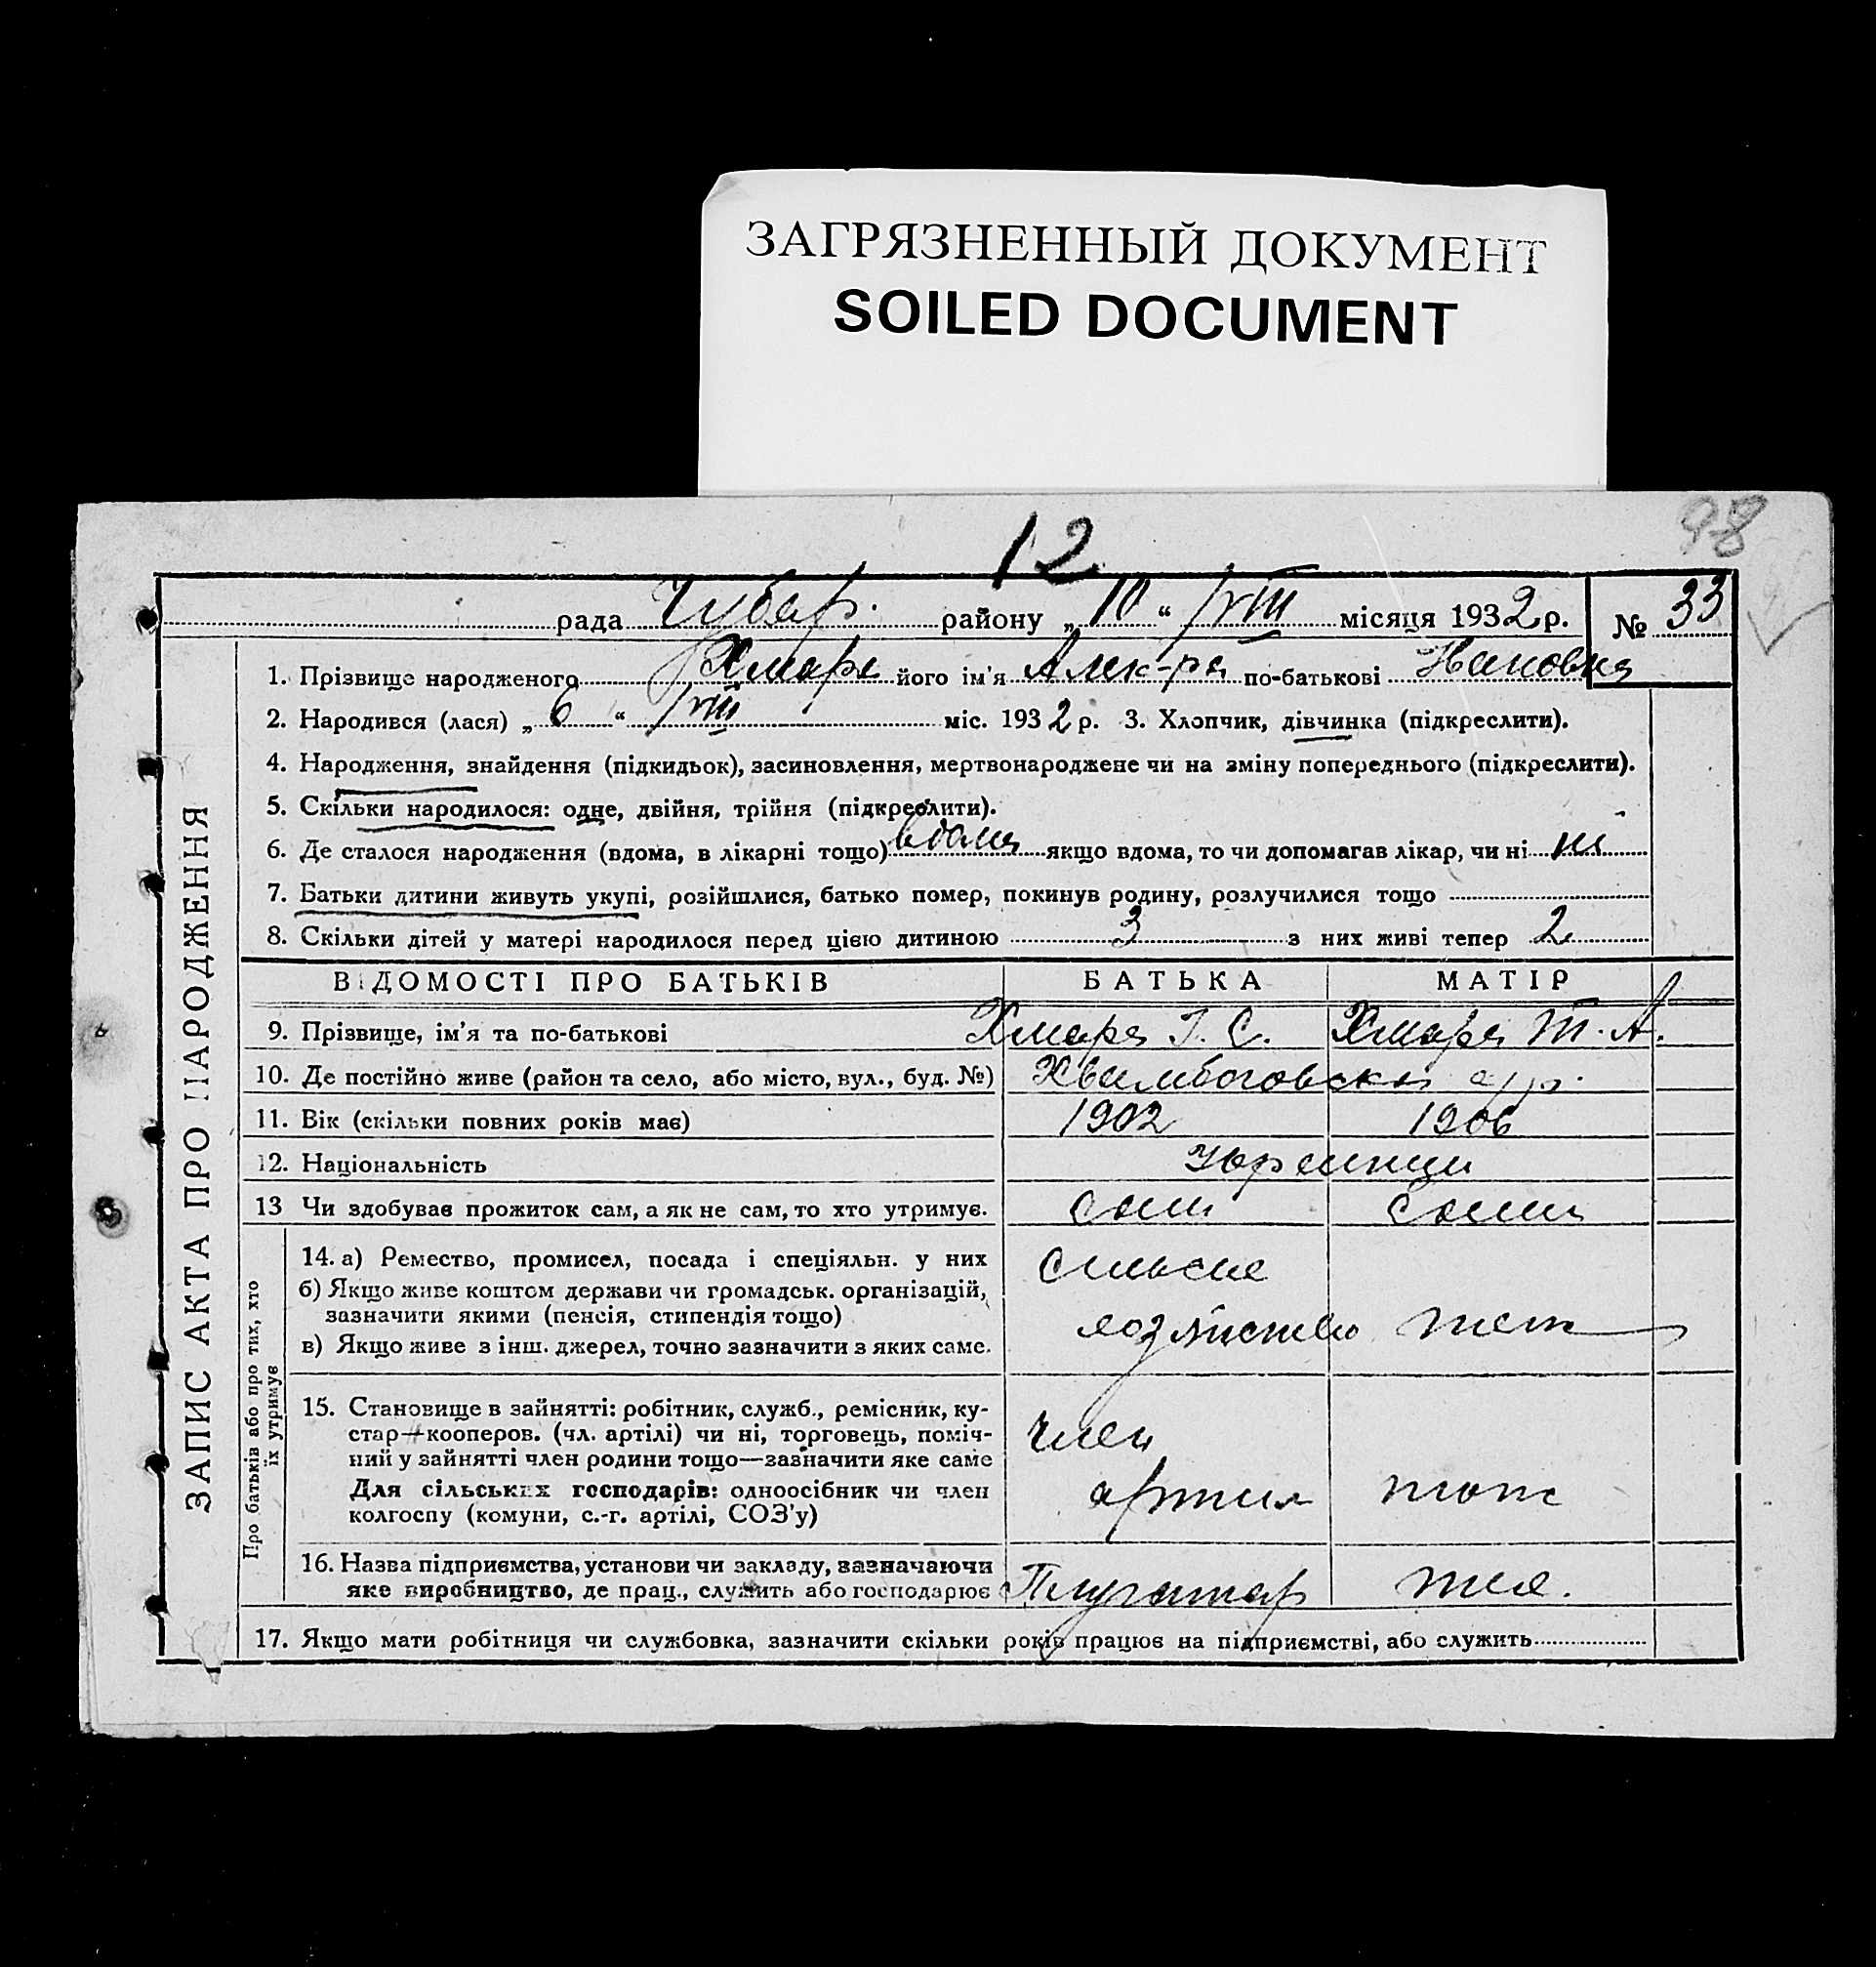 ЗАГРЯЗНЕННЫЙ ДОКУМЕНТ
SOILED DOCUMENT
98
12
рада Чубар. району „10“ VIII місяця 1932 р. № 33
ЗАПИС АКТА ПРО НАРОДЖЕННЯ
1. Прізвище народженого Хмара його ім'я Алек-ра по-батькові
2. Народився (лася) „6“ VIII міс. 1932 р. 3. Хлопчик, дівчинка (підкреслити).
4. Народження, знайдення (підкидьок), засиновлення, мертвонароджене чи на зміну попереднього (підкреслити).
5. Скільки народилося: одне, двійня, трійня (підкреслити).
6. Де сталося народження (вдома, в лікарні тощо) вдома якщо вдома, то чи допомагав лікар, чи ні ні
7. Батьки дитини живуть укупі, розійшлися, батько помер, покинув родину, розлучилися тощо
8. Скільки дітей у матері народилося перед цією дитиною 3 з них живі тепер 2
ВІДОМОСТІ ПРО БАТЬКІВ БАТЬКА МАТІР
9. Прізвище, ім'я та по-батькові Хмара І. С. Хмара Т. А.
10. Де постійно живе (район та село, або місто, вул., буд. №)
11. Вік (скільки повних років має) 1902 1906
12. Національність
13 Чи здобуває прожиток сам, а як не сам, то хто утримує. сам сама
Про батьків або про тих, хто їх утримує
14. а) Ремество, промисел, посада і спеціяльн. у них
б) Якщо живе коштом держави чи громадськ. організацій,
зазначити якими (пенсія, стипендія тощо)
в) Якщо живе з інш. джерел, точно зазначити з яких саме.
15. Становище в зайнятті: робітник, служб., ремісник, ку-
стар-кооперов. (чл. артілі) чи ні, торговець, поміч-
ний у зайнятті член родини тощо—зазначити яке саме
Для сільських господарів: одноосібник чи член
колгоспу (комуни, с.-г. артілі, СОЗ'у)
член
16. Назва підприємства, установи чи закладу, зазначаючи
яке виробництво, де прац., служить або господарює
17. Якщо мати робітниця чи службовка, зазначити скільки років працює на підприємстві, або служить